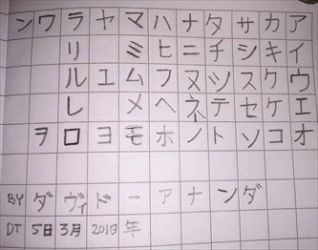 ン ワ ラ ヤ マ ハ ナ タ サ カ ア
リ ミ ヒ ニ チ シ キ イ
ル ユ ム フ ヌ ツ ス ク ウ
レ メ ヘ ネ テ セ ケ エ
ヲ ロ ヨ モ ホ ノ ト ソ コ オ
BY ダ ヴィ ド ー ア ナ ン ダ
DT 5日 3月 2018 年